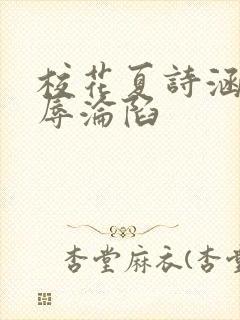 校花夏詩涵
辱淪陷
杏堂麻衣(杏堂